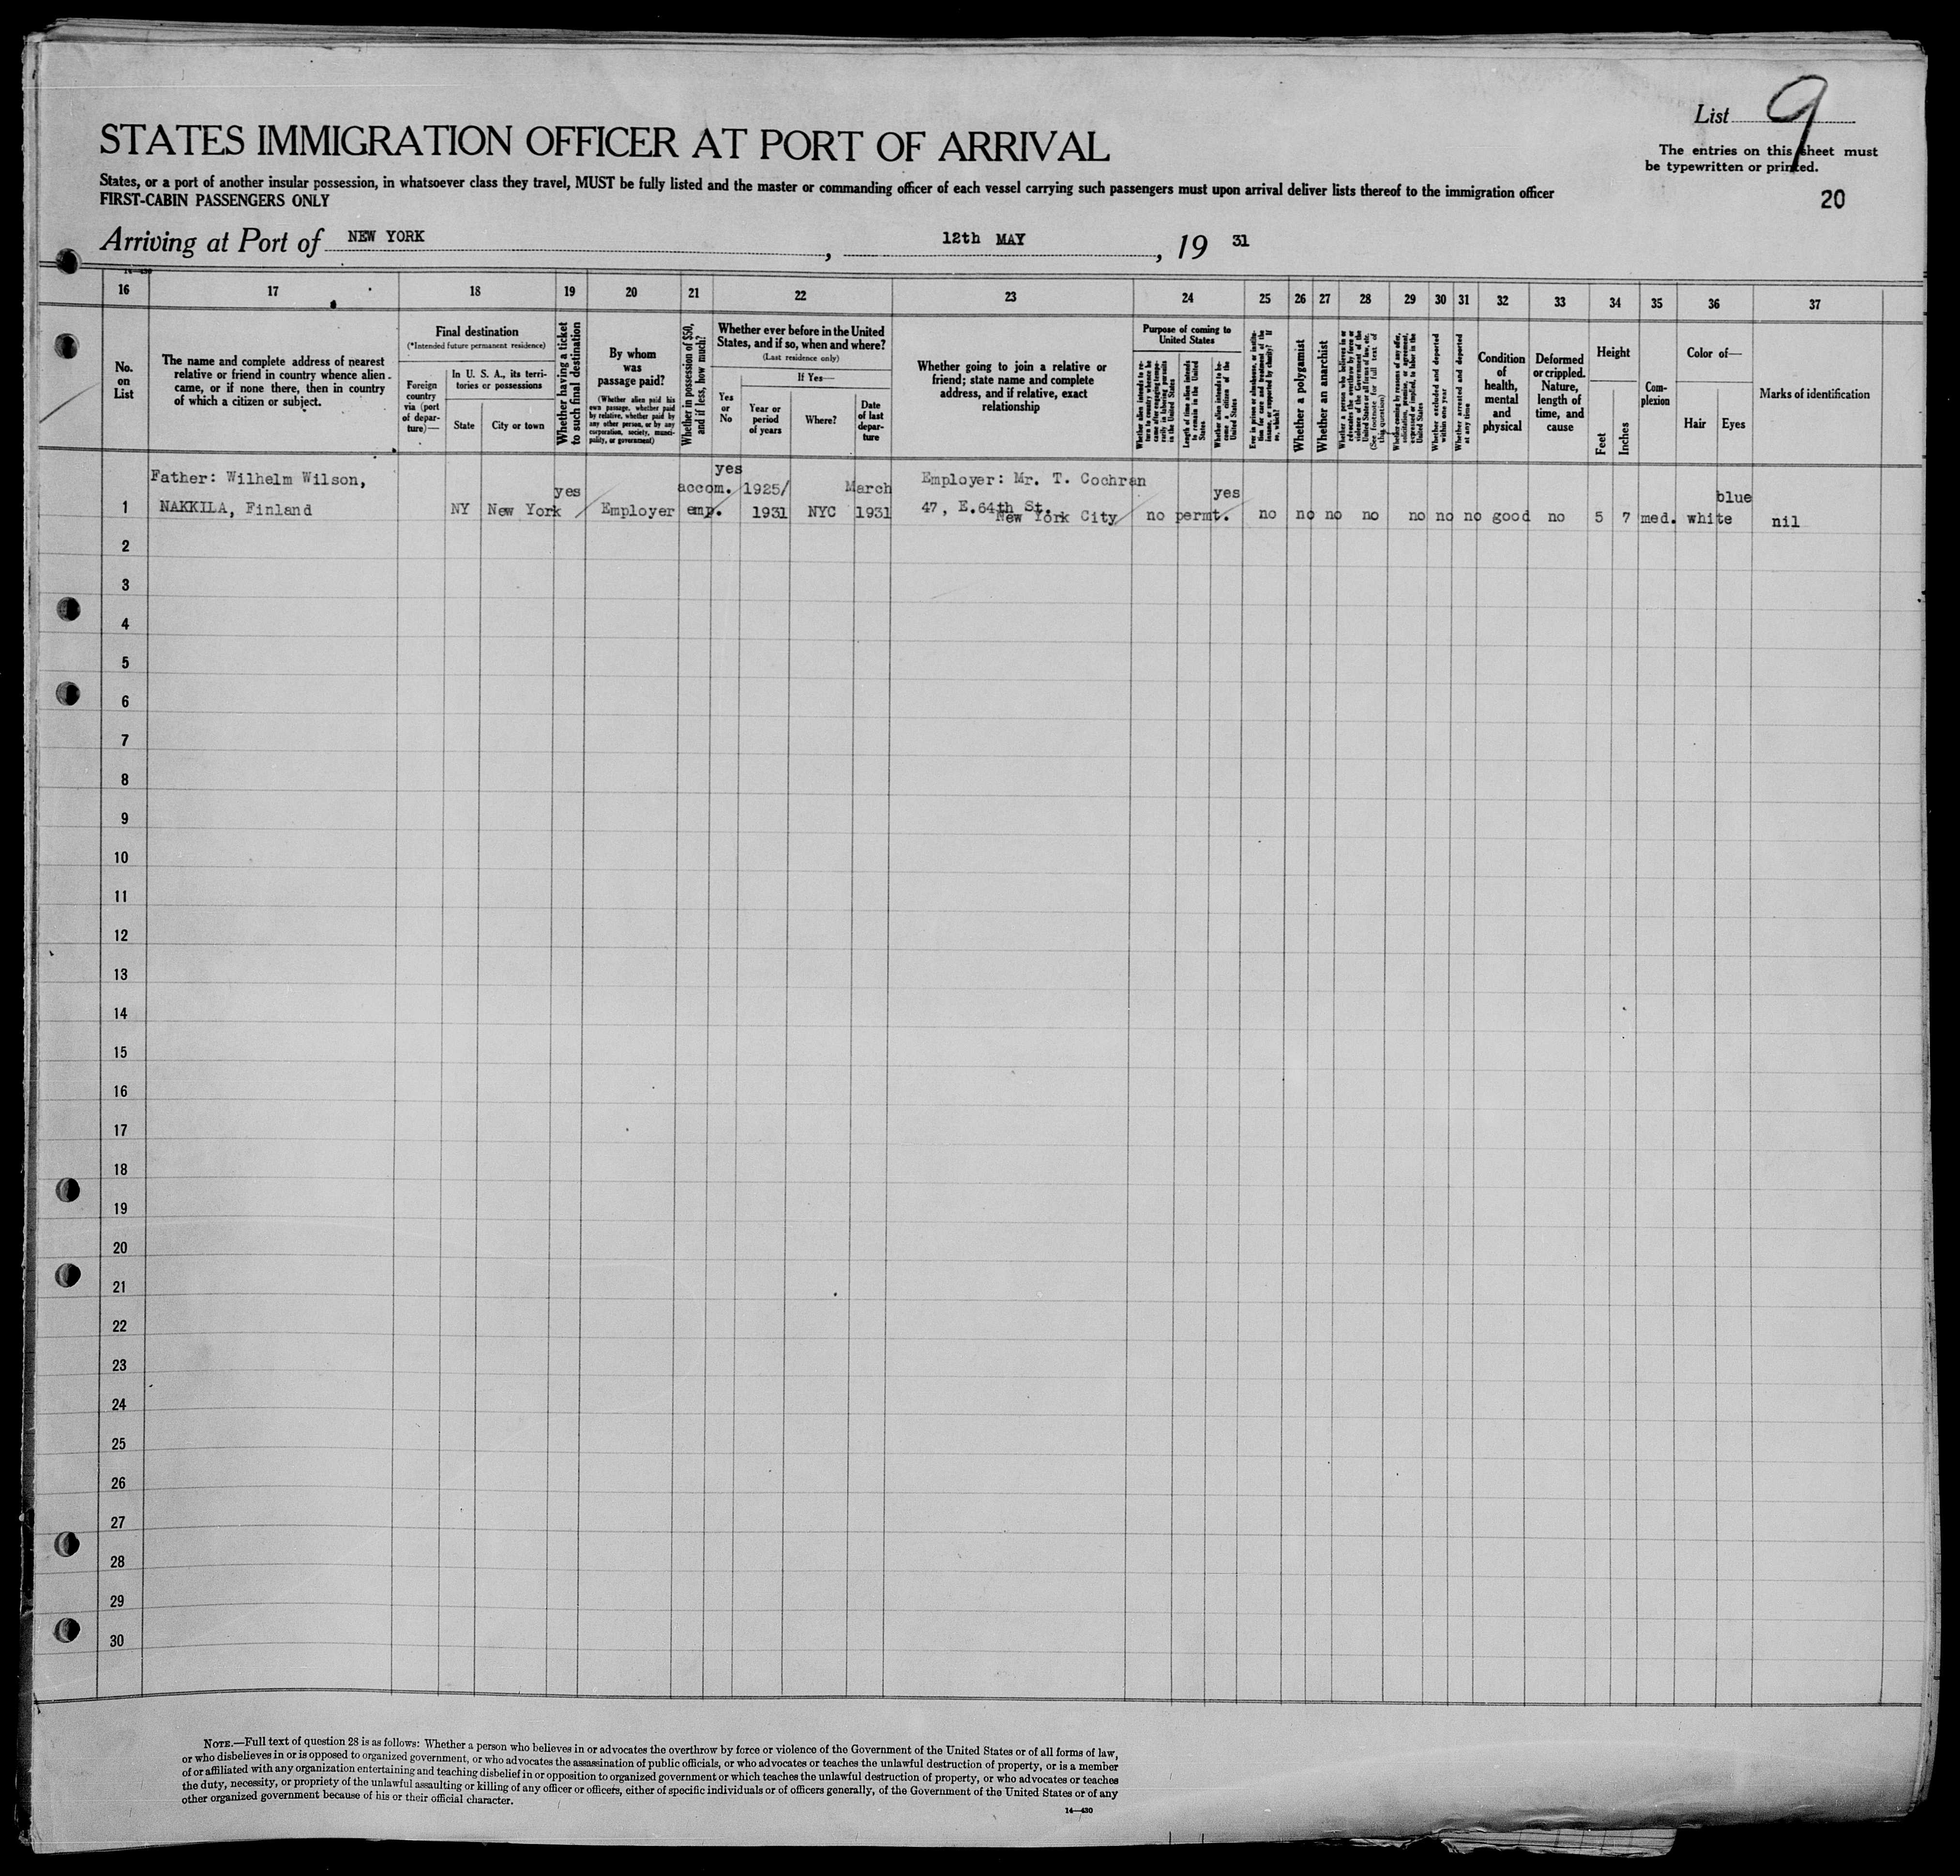 List 9
STATES IMMIGRATION OFFICER AT PORT OF ARRIVAL
The entries on this sheet must
be typewritten or printed.
States, or a port of another insular possession, in whatsoever class they travel, MUST be fully listed and the master or commanding officer of each vessel carrying such passengers must upon arrival deliver lists thereof to the immigration officer
FIRST-CABIN PASSENGERS ONLY
20
Arriving at Port of NEW YORK, 12th MAY, 19 31
14—430
16 17 18 19 20 21 22 23 24 25 26 27 28 29 30 31 32 33 34 35 36 37
No.
on
List
The name and complete address of nearest
relative or friend in country whence alien
came, or if none there, then in country
of which a citizen or subject.
Final destination
(*Intended future permanent residence)
Foreign
country
via (port
of depar-
ture)—
In U. S. A., its terri-
tories or possessions
State
City or town
Whether having a ticket
to such final destination
By whom
was
passage paid?
(Whether alien paid his
own passage, whether paid
by relative, whether paid by
any other person, or by any
corporation, society, munici-
pality, or government)
Whether in possession of $50,
and if less, how much?
Whether ever before in the United
States, and if so, when and where?
(Last residence only)
Yes
or
No
If Yes—
Year or
period
of years
Where?
Date
of last
depar-
ture
Whether going to join a relative or
friend; state name and complete
address, and if relative, exact
relationship
Purpose of coming to
United States
Whether alien intends to re-
turn to country whence he
came after engaging tempo-
rarily in laboring pursuits
in the United States
Length of time alien intends
to remain in the United
States
Whether alien intends to be-
come a citizen of the
United States
Ever in prison or almshouse, or institu-
tion for care and treatment of the
insane, or supported by charity? If
so, which?
Whether a polygamist
Whether an anarchist
Whether a person who believes in or
advocates the overthrow by force or
violence of the Government of the
United States or all forms of law, etc.
(See footnote for full text of
this question)
Whether coming by reasons of any offer,
solicitation, promise, or agreement,
expressed or implied, to labor in the
United States
Whether excluded and deported
within one year
Whether arrested and deported
at any time
Condition
of
health,
mental
and
physical
Deformed
or crippled.
Nature,
length of
time, and
cause
Height
Feet
Inches
Com-
plexion
Color of—
Hair
Eyes
Marks of identification
Father: Wilhelm Wilson, yes accom. yes 1925/ March Employer: Mr. T. Cochran yes blue
1 NAKKILA, Finland NY New York Employer emp. 1931 NYC 1931 47, E.64th St. no permt. no no no no no no no good no 5 7 med. white nil
New York City
2
3
4
5
6
7
8
9
10
11
12
13
14
15
16
17
18
19
20
21
22
23
24
25
26
27
28
29
30
NOTE.—Full text of question 28 is as follows: Whether a person who believes in or advocates the overthrow by force or violence of the Government of the United States or of all forms of law,
or who disbelieves in or is opposed to organized government, or who advocates the assassination of public officials, or who advocates or teaches the unlawful destruction of property, or is a member
of or affiliated with any organization entertaining and teaching disbelief in or opposition to organized government or which teaches the unlawful destruction of property, or who advocates or teaches
the duty, necessity, or propriety of the unlawful assaulting or killing of any officer or officers, either of specific individuals or of officers generally, of the Government of the United States or of any
other organized government because of his or their official character.
14—430